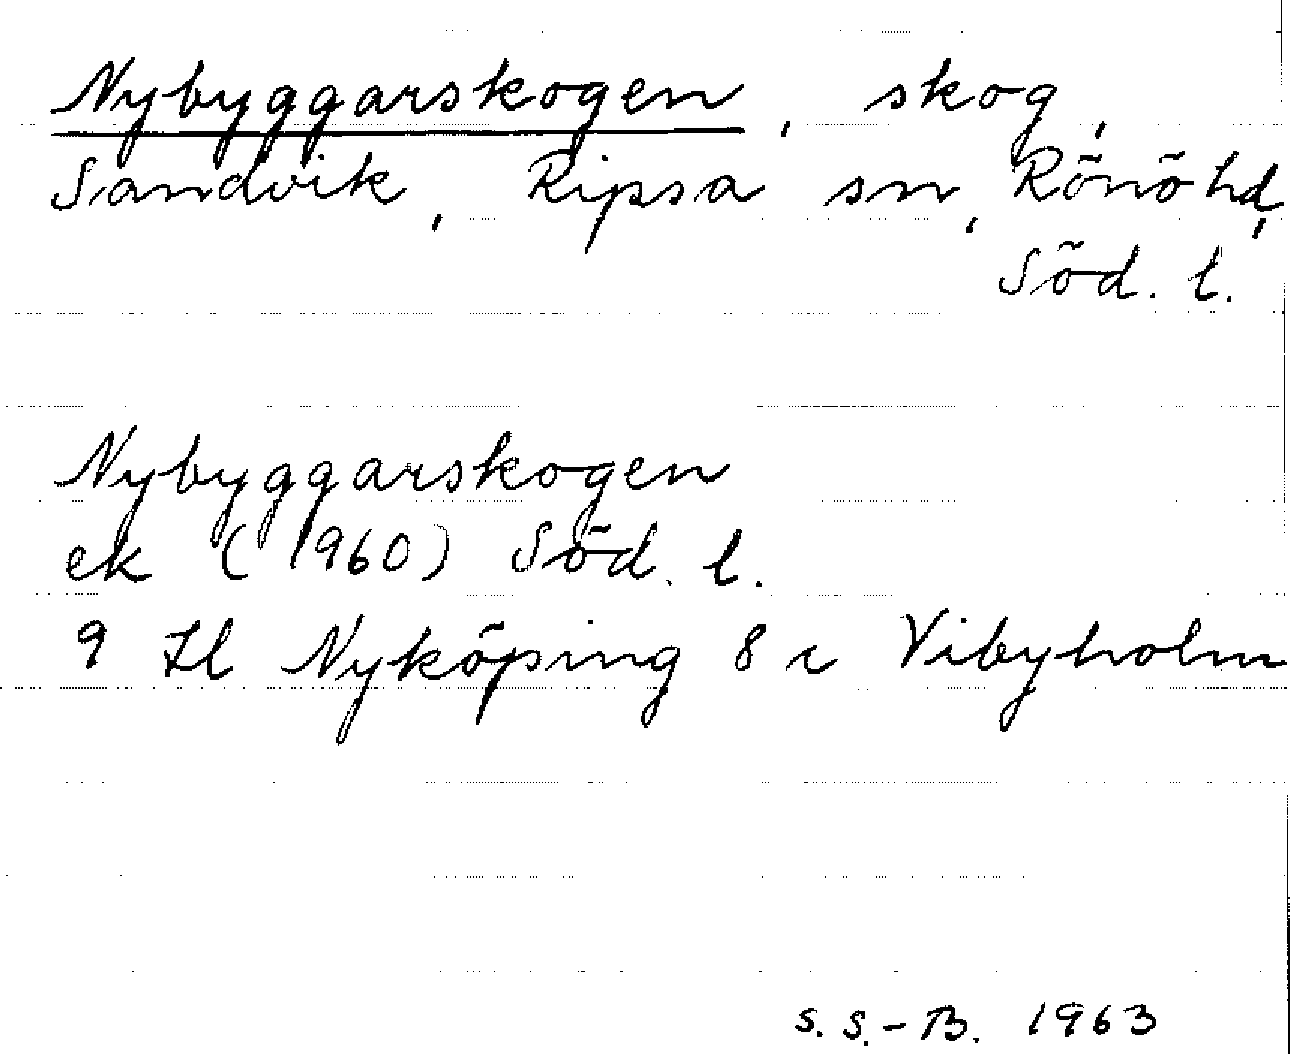 Nybyggarskogen, skog,
Sandvik, Ripsa sn, Rönö hd,
Söd. l.
Nybyggarskogen
ek (1960) Söd. l.
9 Hl Nyköping 8 i Vibyholm
S. S.-B. 1963